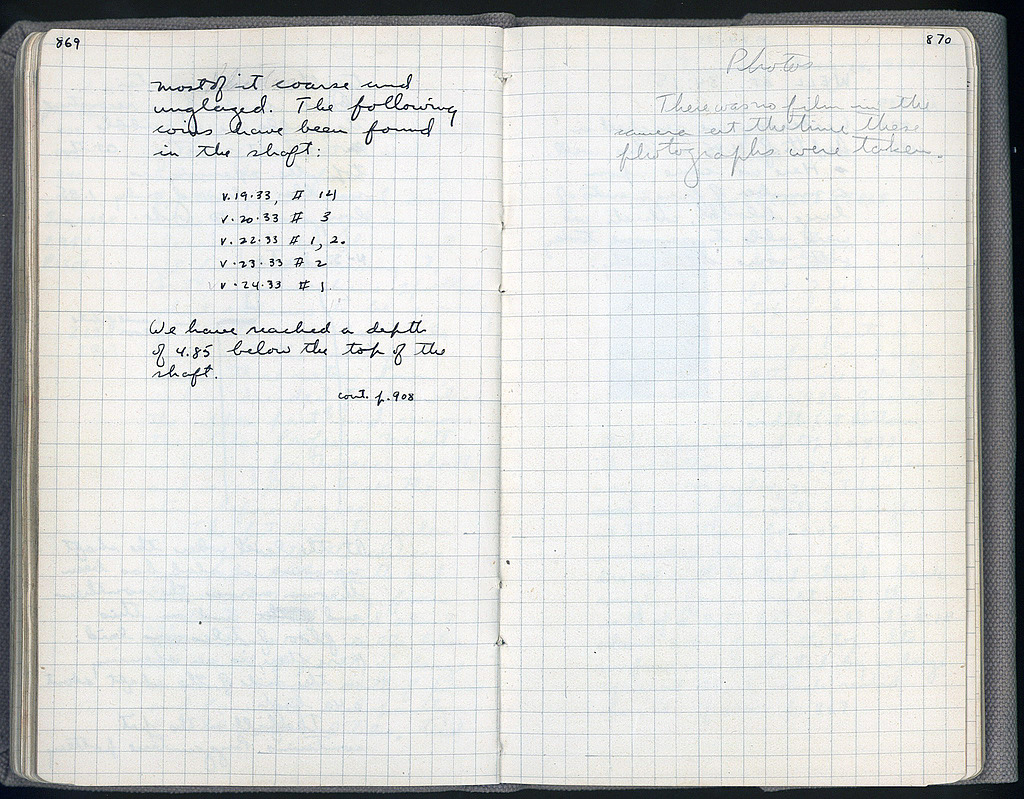 869
most of it coarse and
unglazed. The following
coins have been found
in the shaft:
V.19.33, # 14
V.20.33 # 3
V.22.33 # 1, 2.
V.23.33 # 2
V.24.33 # 1.
We have reached a depth
of 4.85 below the top of the
shaft.
cont. p. 908
870
Photos
There was no film in the
camera at the time these
photographs were taken.